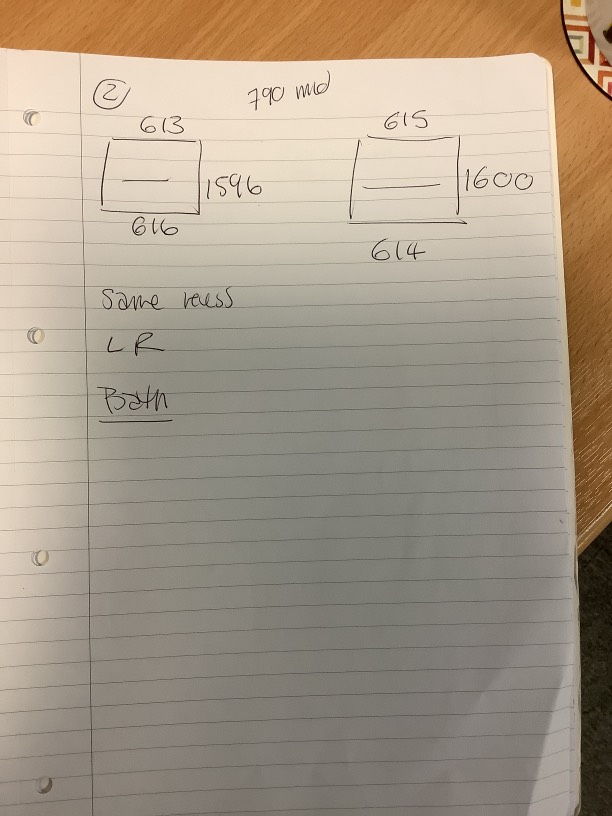 2 790 mid
613 615
1596 1600
616
614
Same recess
L R
Bath